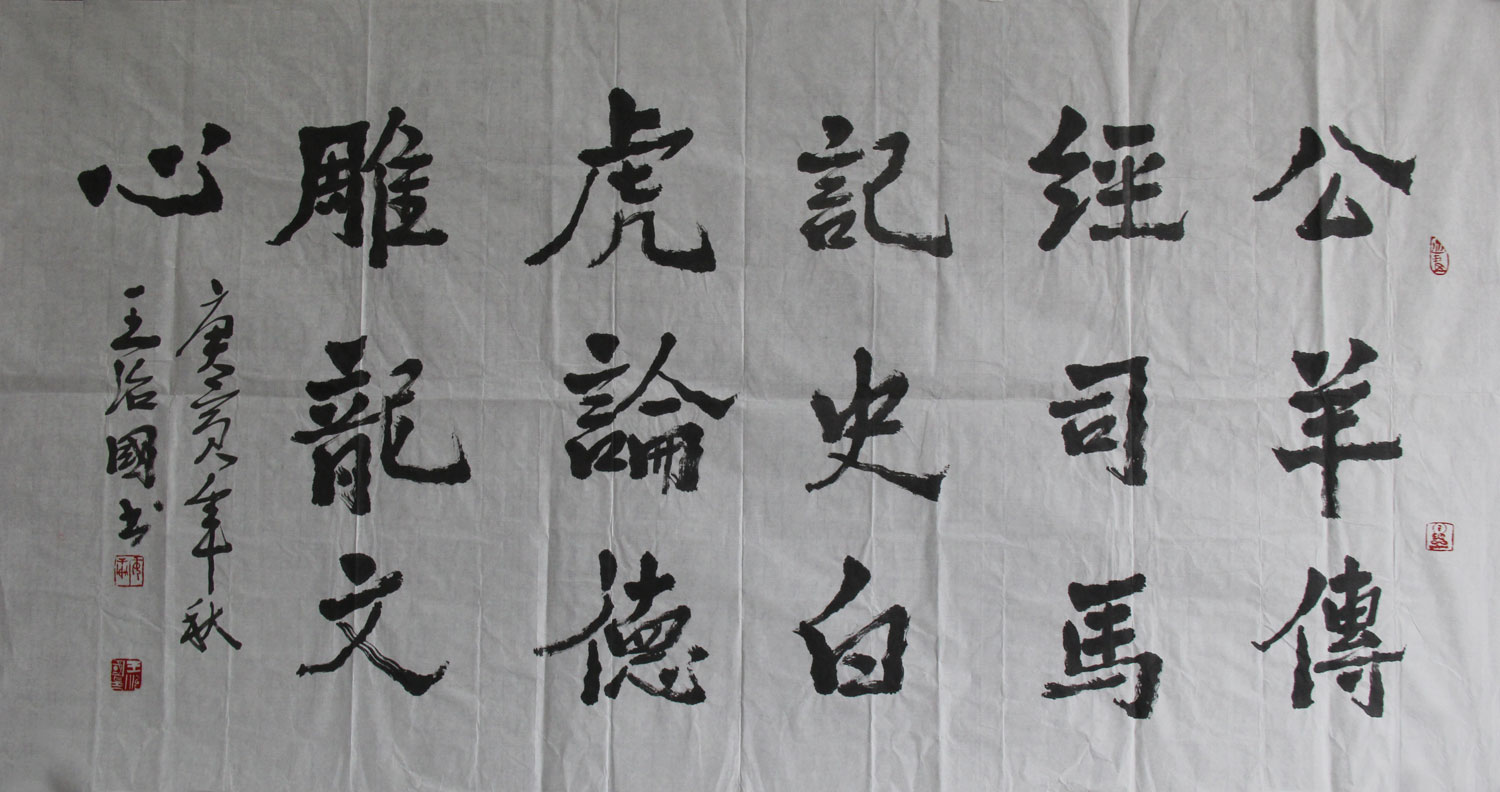 公羊傳
經司馬
記史白
虎論德
雕龍文
心
庚寅年秋
王治國书